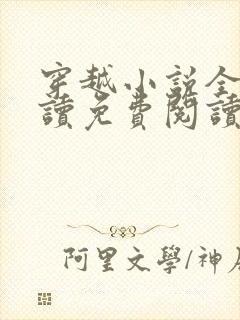 穿越小説全
讀免費閱讀
阿里文學/神